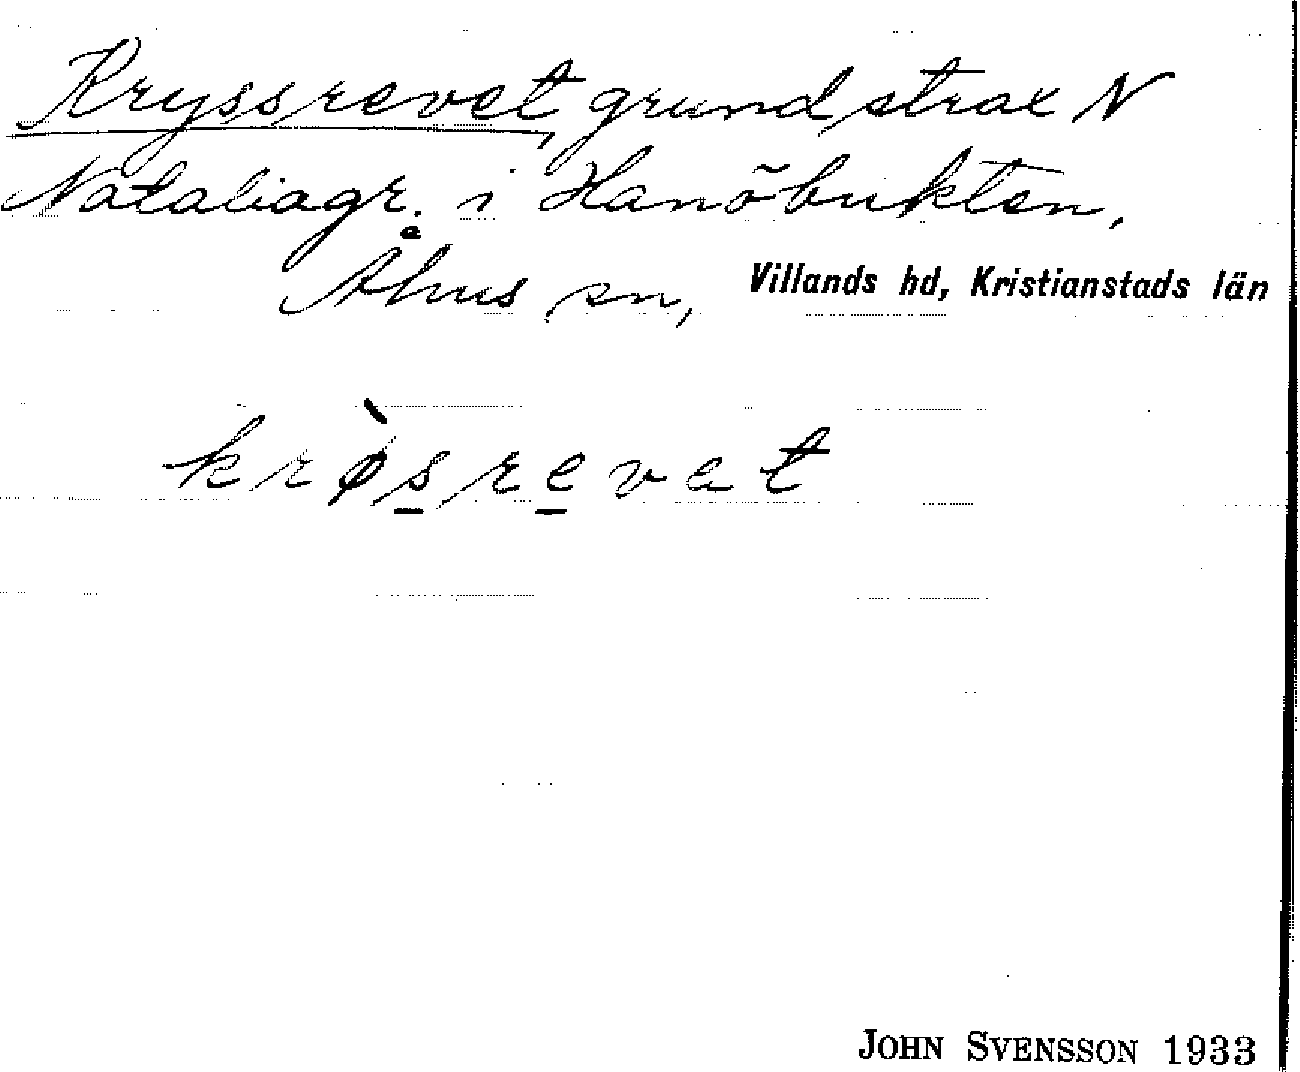 Kryssrevet, grund strax N
Nataliagr. i Hanöbukten,
Åhus sn, Villands hd, Kristianstads län
krø̀s̲re̲vet
JOHN SVENSSON 1933